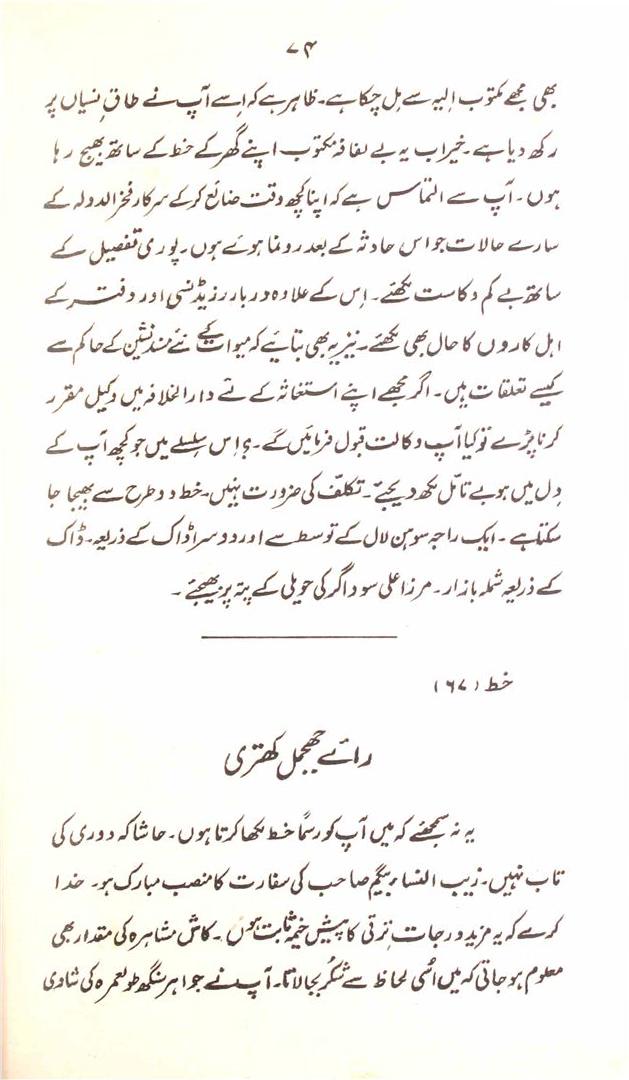 ۷۴
بھی مجھے مکتوب الیہ سے مل چکا ہے۔ ظاہر ہے کہ اِسے آپ نے طاقِ نسیاں پر
رکھ دیا ہے۔ خیر اب یہ بے لفافہ مکتوب اپنے گھر کے خط کے ساتھ بھیج رہا
ہوں۔ آپ سے التماس ہے کہ اپنا کچھ وقت ضائع کر کے سرکار فخر الدولہ کے
سارے حالات جو اس حادثہ کے بعد رونما ہوئے ہوں۔ پوری تفصیل کے
ساتھ بے کم و کاست لکھئے۔ اِس کے علاوہ دربار رزیڈنسی اور دفتر کے
اہل کاروں کا حال بھی لکھئے۔ نیز یہ بھی بتائیے کہ میوات کے نئے مسند نشین کے حاکم سے
کیسے تعلقات ہیں۔ اگر مجھے اپنے استغاثہ کے لئے دارالخلافہ میں وکیل مقرر
کرنا پڑے تو کیا آپ وکالت قبول فرمائیں گے۔؟ اِس سلسلے میں جو کچھ آپ کے
دِل میں ہو بے تامّل لکھ دیجیے۔ تکلّف کی ضرورت نہیں۔ خط دو طرح سے بھیجا جا
سکتا ہے۔ ایک راجہ سوہن لال کے توسط سے اور دوسرا ڈاک کے ذریعہ۔ ڈاک
کے ذریعہ شملہ بازار۔ مرزا علی سوداگر کی حویلی کے پتہ پر بھیجئے۔
خط (۶۷)
رائے چھجمل کھتری
یہ نہ سمجھئے کہ میں آپ کو رسمًا خط لکھا کرتا ہوں۔ حاشا کہ دوری کی
تاب نہیں۔ زیب النساء بیگم صاحب کی سفارت کا منصب مبارک ہو۔ خدا
کرے کہ یہ مزید درجات ترقی کا پیش خیمہ ثابت ہوں۔ کاش مشاہرہ کی مقدار بھی
معلوم ہو جاتی کہ میں اُسی لحاظ سے شکر بجا لاتا۔ آپ نے جواہر سنگھ طولعمرہ کی شادی